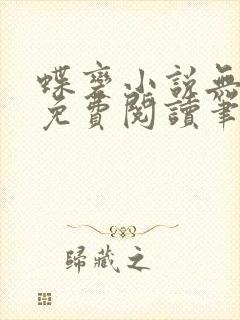 蝶变小說無
免費閱讀筆
歸藏之